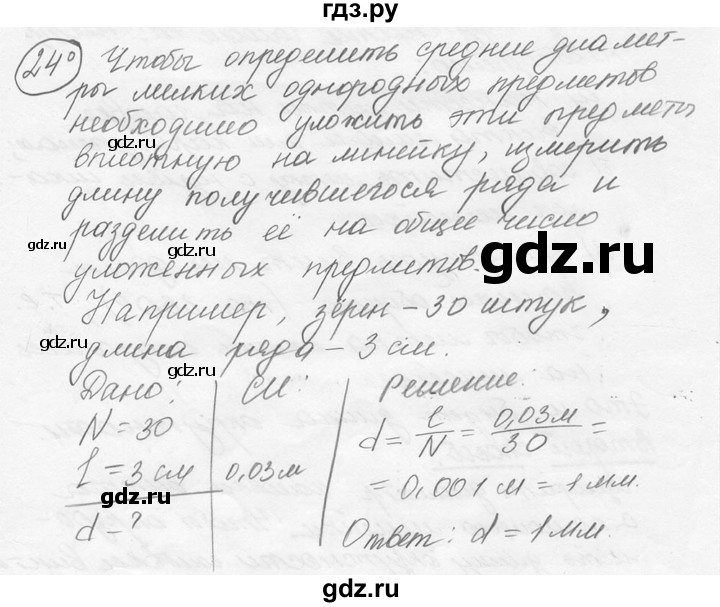 гдз.ру
24° Чтобы определить средние диамет-
ры мелких однородных предметов
необходимо уложить эти предметы
вплотную на линейку, измерить
длину получившегося ряда и
разделить её на общее число
уложенных предметов.
gdz.ru
gdz.ru
gdz.ru
Например, зёрен – 30 штук,
длина ряда – 3 см.
gdz.ru
gdz.ru
Дано: СИ: Решение:
N = 30
l = 3 см 0,03 м
d = ?
d = l/N = 0,03 м/30 =
= 0,001 м = 1 мм.
Ответ: d = 1 мм.
gdz.ru
gdz.ru
gdz.ru